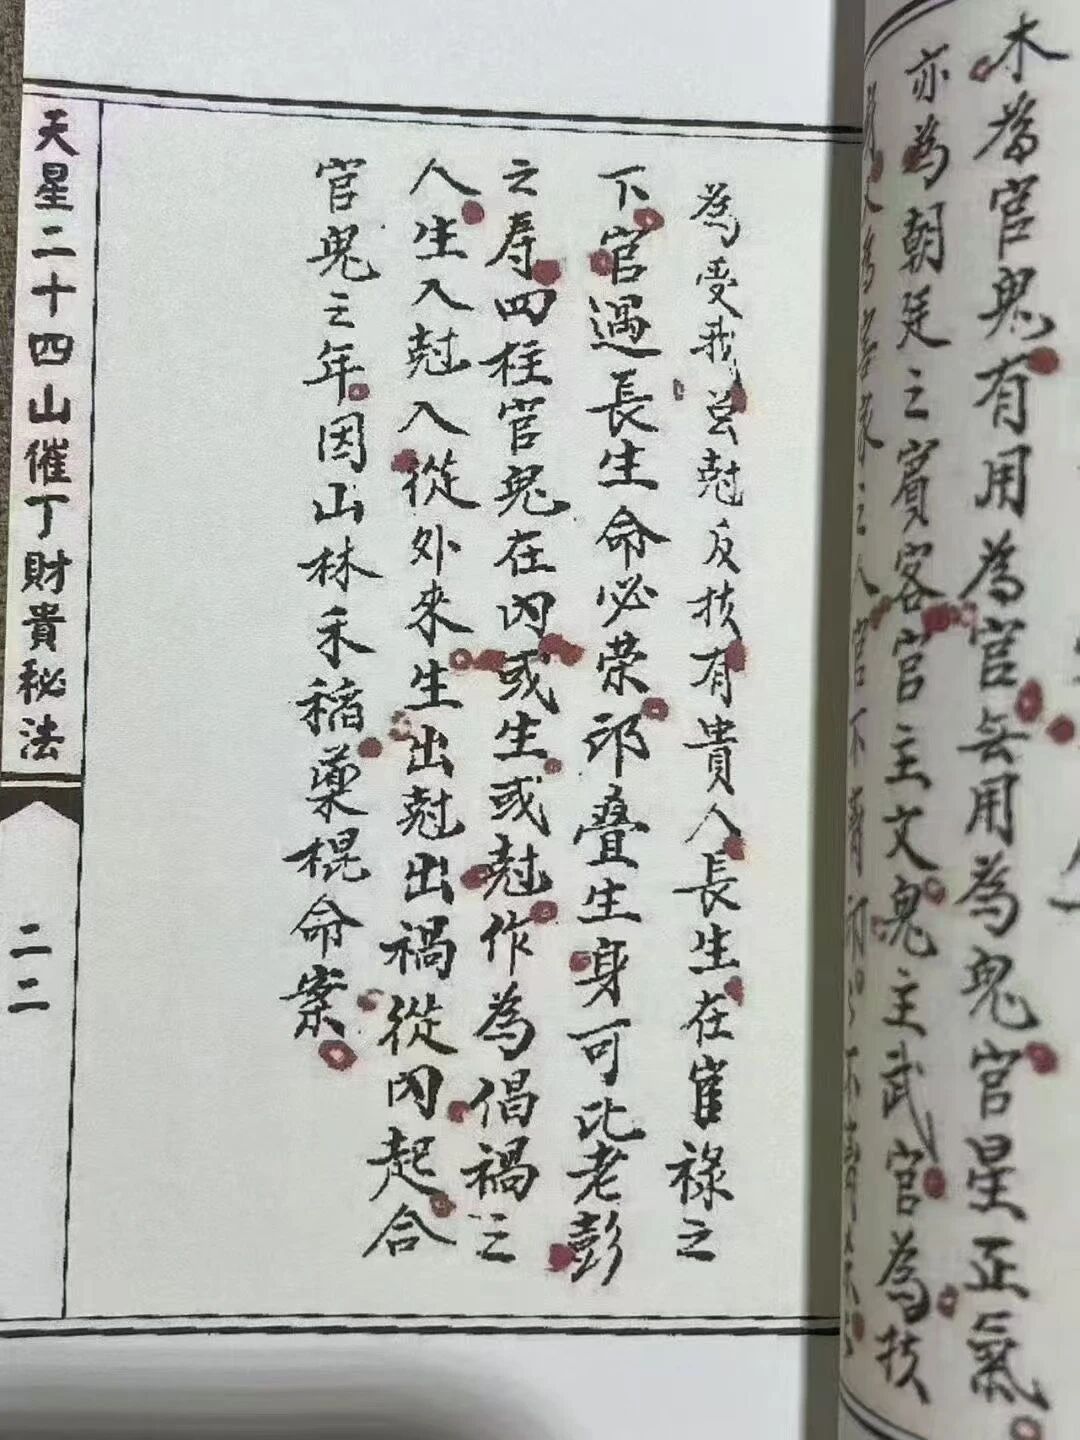 木為官鬼有用為官無用為鬼官星正氣
亦為朝廷之賓客官主文鬼主武官為技
為受我㕕尅反技有貴人長生在官祿之
下官遇長生命必荣祁叠生身可比老彭
之寿四柱官鬼在內或生或尅作為倡禍之
人生入尅入從外來生出尅出禍從內起合
官鬼之年因山林禾稻藥棍命案
天星二十四山催丁財貴秘法
二二